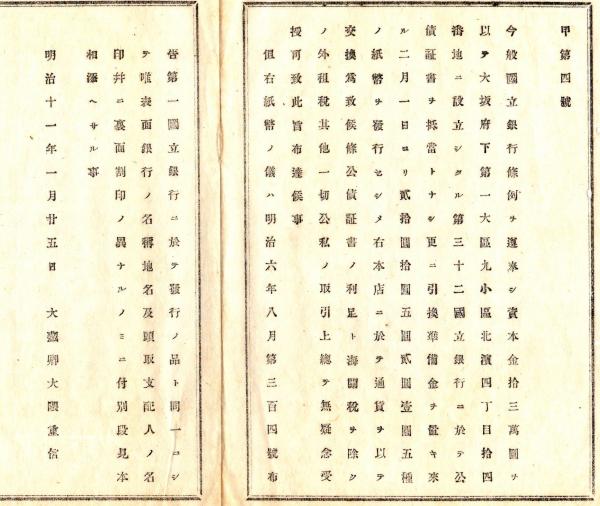 甲第四號
今般國立銀行條例ヲ遵奉シ資本金拾三萬圓ヲ
以テ大坂府下第一大區九小區北濱四丁目拾四
番地ニ設立シタル第三十二國立銀行ニ於テ公
債証書ヲ抵當トナシ更ニ引換準備金ヲ置キ來
ル二月一日ヨリ貳拾圓拾圓五圓貳圓壹圓五種
ノ紙幣ヲ發行セシメ右本店ニ於テ通貨ヲ以テ
交換爲致候條公債証書ノ利足ト海關稅ヲ除ク
ノ外租稅其他一切公私ノ取引上總テ無疑念受
授可致此旨布達候事
但右紙幣ノ儀ハ明治六年八月第三百四號布
告第一國立銀行ニ於テ發行ノ品ト同一ニシ
テ唯表面銀行ノ名稱地名及頭取支配人ノ名
印幷ニ裏面割印ノ異ナルノミニ付別段見本
相添ヘサル事
明治十一年一月廿五日 大藏卿大隈重信